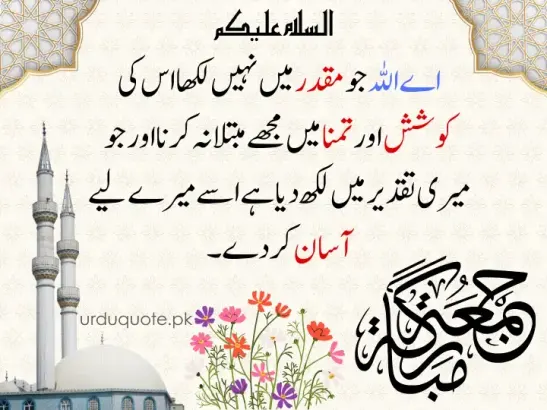 السلام علیکم
اے اللہ جو مقدر میں نہیں لکھا اس کی
کوشش اور تمنا میں مجھے مبتلا نہ کرنا اور جو
میری تقدیر میں لکھ دیا ہے اسے میرے لیے
آسان کر دے۔
جمعتہ
مبارکہ
urduquote.pk